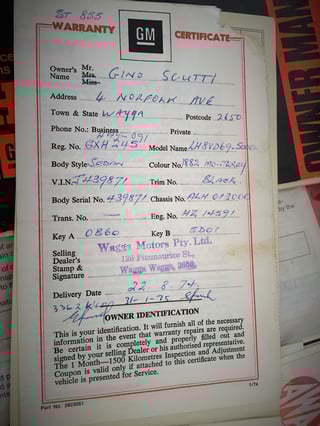 ST 855
WARRANTY GM CERTIFICATE
Owner's Name Mr. Mrs. Miss GINO SCUTTI
Address 4 NORFOLK AVE
Town & State WAGGA Postcode 2650
Phone No.: Business Private
Reg. No. GXH 245 Model Name
Body Style SEDAN Colour No. 1882
V.I.N. J439871 Trim No. BLACK
Body Serial No. 439871 Chassis No.
Trans. No. — Eng. No. HZ 14591
Key A 0860 Key B 5D01
Selling Dealer's Stamp & Signature
Wagga Motors Pty. Ltd.
126 Fitzmaurice St.,
Wagga Wagga, 2650.
Delivery Date 22 8. 74
31-1-75
OWNER IDENTIFICATION
This is your identification. It will furnish all of the necessary
information in the event that warranty repairs are required.
Be certain it is completely and properly filled out and
signed by your selling Dealer or his authorised representative.
The 1 Month—1500 Kilometres Inspection and Adjustment
Coupon is valid only if attached to this certificate when the
vehicle is presented for Service.
1/74
Part No. 2823051
OWNER MAN